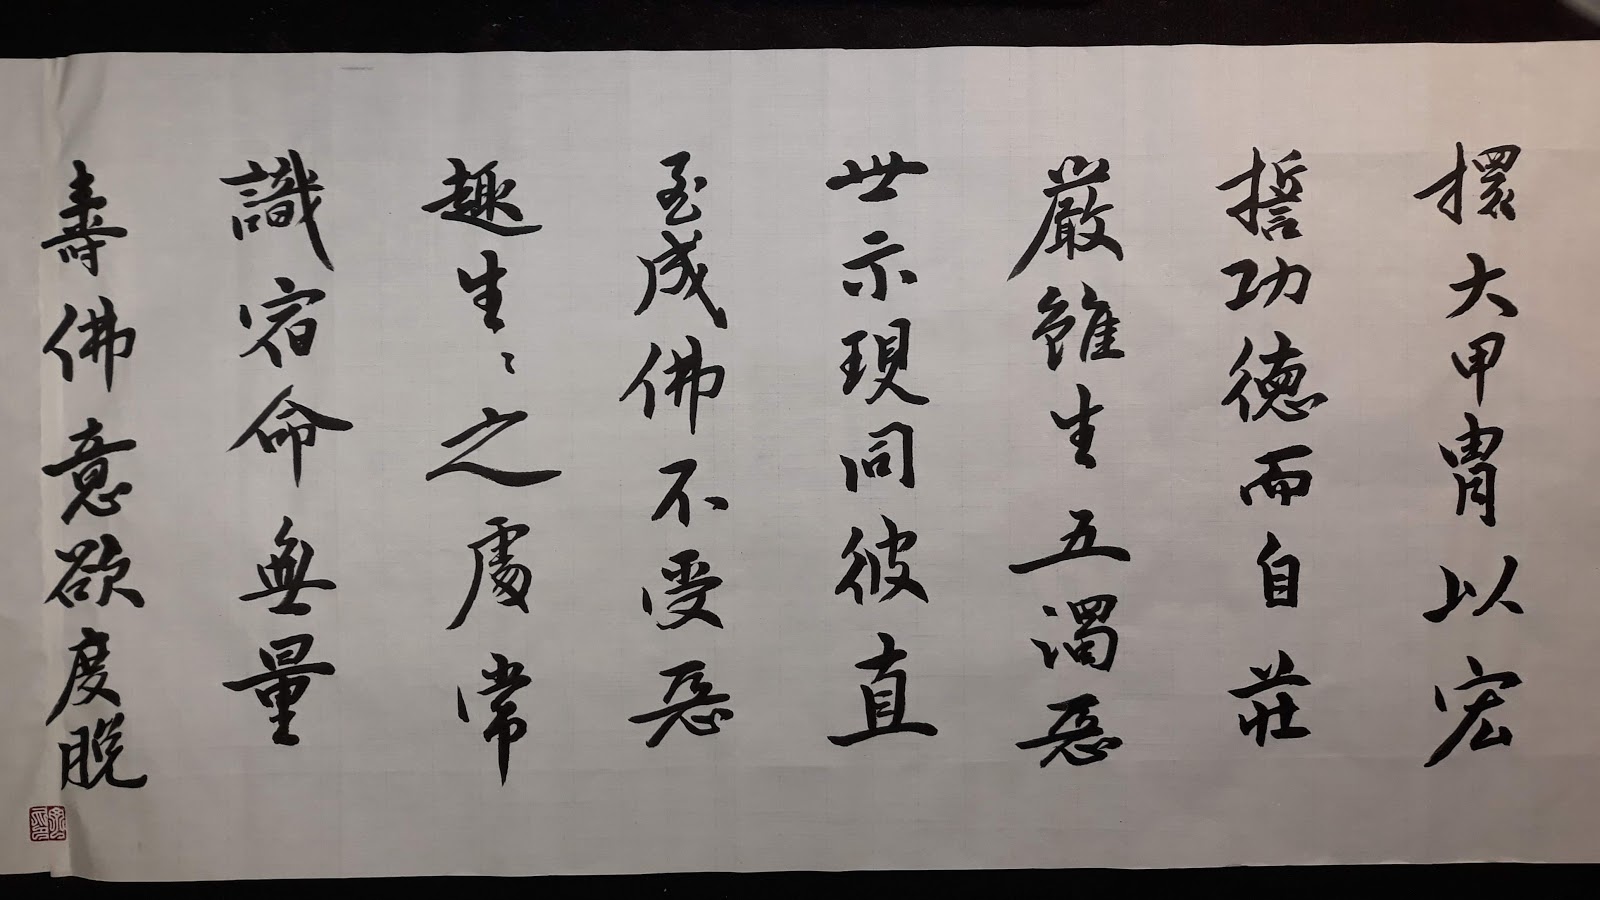 擐大甲冑以宏
誓功德而自莊
嚴雖生五濁惡
世示現同彼直
至成佛不受惡
趣生〻之處常
識宿命無量
壽佛意欲度脫